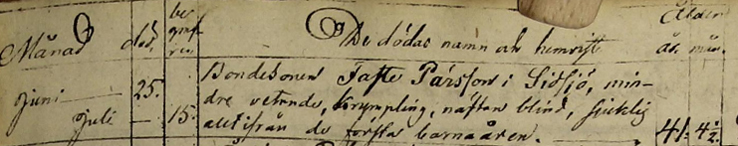 Månad död. be grafven De dödas namn och hemvist Ålder år. mån.
Juni 25. Bondesonen Taste Pärsson i Sidsjö, min-
Juli — 15. dre vetande, krympling, nästan blind, sjuklig
alltifrån de första barnaåren. 41. 4½.